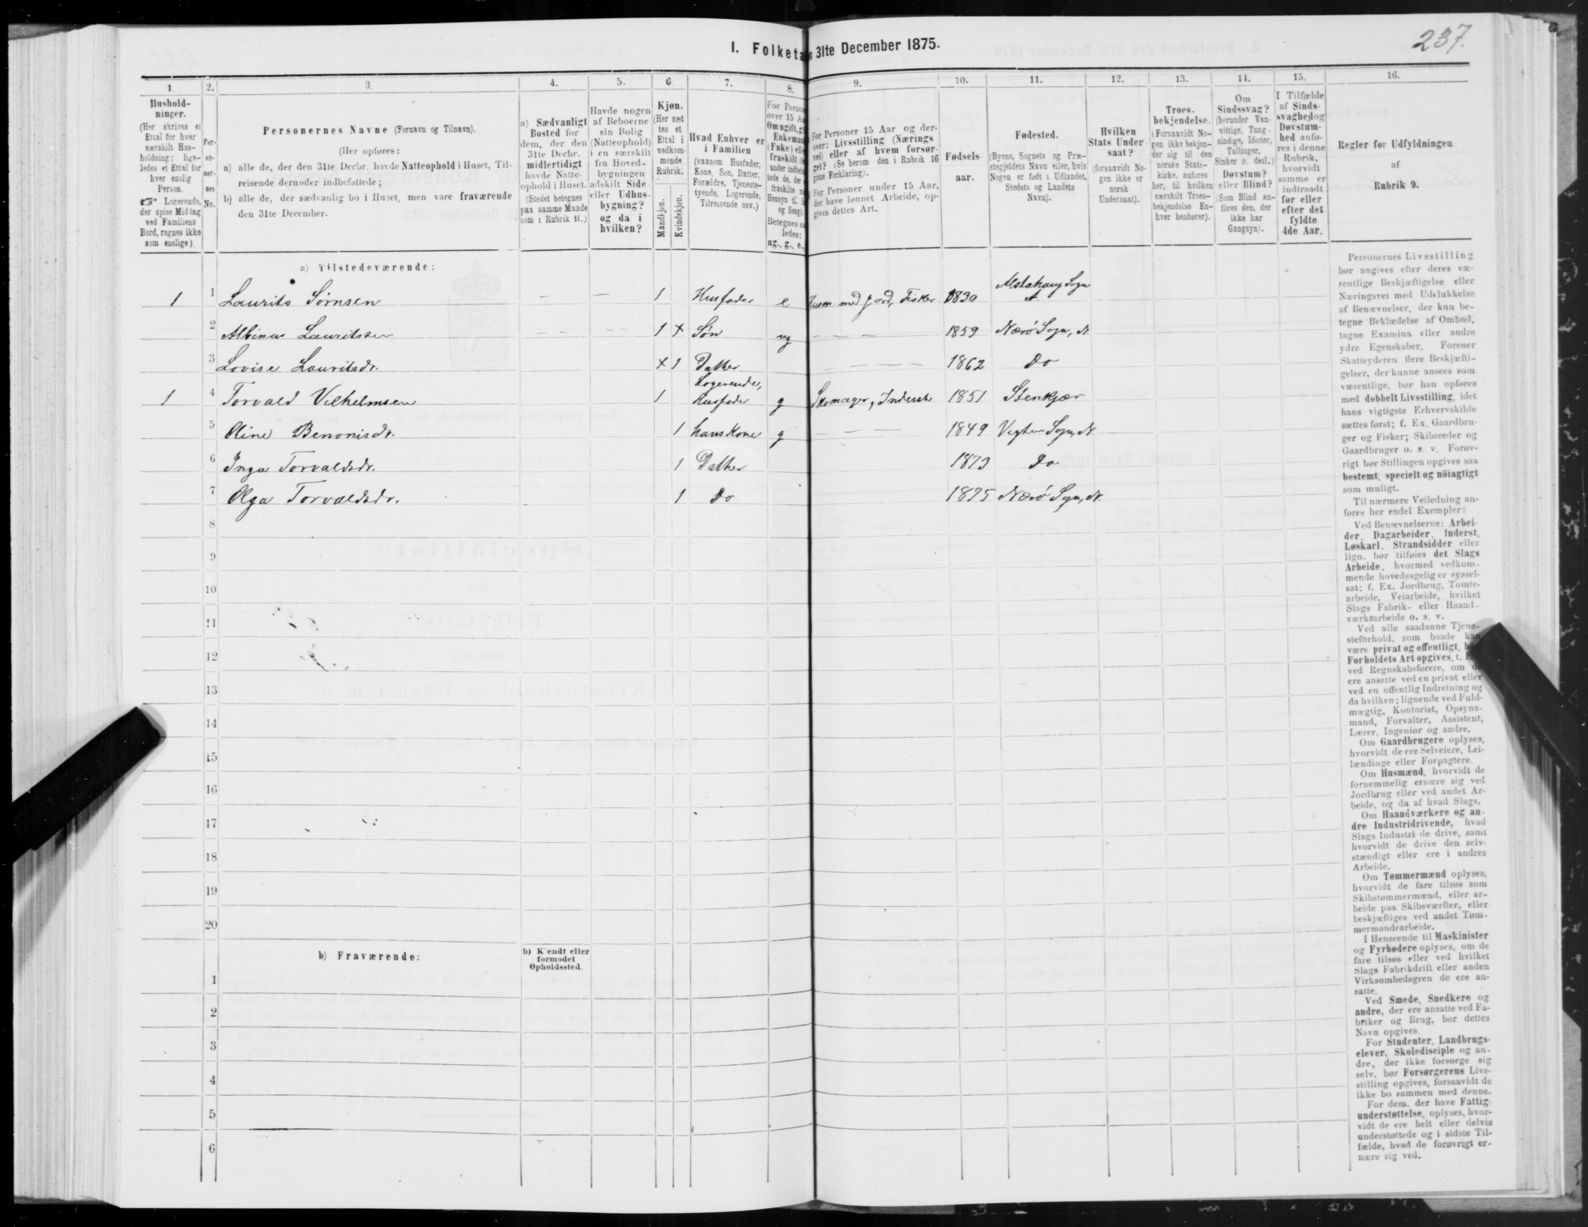 237.
I. Folketæ 31te December 1875.
1. 2. 3. 4. 5. 6. 7. 8. 9. 10. 11. 12. 13. 14. 15. 16.
Hushold-
ninger.
(Her skrives et
Ettal for hver
særskilt Hus-
holdning; lige-
ledes et Ettal for
hver enslig
Person.
☞ Logerende,
der spise Middag
ved Familiens
Bord, regnes ikke
som enslige).
Per-
so-
ner-
nes
No.
Personernes Navne (Fornavn og Tilnavn).
(Her opføres:
a) alle de, der den 31te Decbr. havde Natteophold i Huset, Til-
reisende derunder indbefattede;
b) alle de, der sædvanlig bo i Huset, men vare fraværende
den 31te December.
a) Sædvanligt
Bosted for
dem, der den
31te Decbr.
midlertidigt
havde Natte-
ophold i Huset.
(Stedet betegnes
paa samme Maade
som i Rubrik 11.)
Havde nogen
af Beboerne
sin Bolig
(Natteophold)
i en særskilt
fra Hoved-
bygningen
adskilt Side-
eller Udhus-
bygning?
og da i
hvilken?
Kjøn.
(Her sæt-
tes et
Ettal i
vedkom-
mende
Rubrik.
Mandkjøn.
Kvindekjøn.
Hvad Enhver er
i Familien
(saasom Husfader,
Kone, Søn, Datter,
Forældre, Tjeneste-
tyende, Logerende,
Tilreisende osv.)
For Person
over 15 Aa
Om ugift, g
Enkeman
(Enke) elle
fraskilt
Betegnes s
ledes:
ug., g., e.,
For Personer 15 Aar og der-
over: Livsstilling (Nærings-
vei) eller af hvem forsør-
get? (Se herom den i Rubrik 16
givne Forklaring).
For Personer under 15 Aar,
der have lønnet Arbeide, op-
gives dettes Art.
Fødsels-
aar.
Fødested.
(Byens, Sognets og Præ-
stegjeldets Navn eller, hvis
Nogen er født i Udlandet,
Stedets og Landets
Navn).
Hvilken
Stats Under-
saat?
(forsaavidt No-
gen ikke er
norsk
Undersaat).
Troes-
bekjendelse.
(Forsaavidt No-
gen ikke bekjen-
der sig til den
norske Stats-
kirke, anføres
her, til hvilken
særskilt Troes-
bekjendelse En-
hver henhører).
Om
Sindssvag?
(herunder Van-
vittige, Tung-
sindige, Idioter,
Tullinger,
Sinker o. desl.)
Døvstum?
eller Blind?
(Som Blind an-
føres den, der
ikke har
Gangsyn).
I Tilfælde
af Sinds-
svaghed og
Døvstum-
hed anfø-
res i denne
Rubrik,
hvorvidt
samme er
indtraadt
før eller
efter det
fyldte
4de Aar.
Regler for Udfyldningen
af
Rubrik 9.
a) Tilstedeværende:
1 1 Laurits Sørnsen — — 1 Husfader e Husm. med Jord, Fisker 1830 Alstahaug Sogn N
2 Albinus Lauritssen 1 × Søn ug 1859 Nærø Sogn, N.
3 Lovise Lauritsdr. × 1 Datter 1862 Do
1 4 Torvald Vilhelmsen 1 Logerende, Husfader g Skomager, Inderst 1851 Stenkjær
5 Oline Benonisdr. 1 hans Kone g 1849 Vigten Sogn, N.
6 Inga Torvaldsdr. 1 Datter 1873 Do
7 Olga Torvaldsdr. 1 Do 1875 Nærø Sogn, N.
8
9
10
11
12
13
14
15
16
17
18
19
20
b) Fraværende:
b) Kjendt eller
formodet
Opholdssted.
1
2
3
4
5
6
Personernes Livsstilling
bør angives efter deres væ-
sentlige Beskjæftigelse eller
Næringsvei med Udelukkelse
af Benævnelser, der kun be-
tegne Beklædelse af Ombud,
tagne Examina eller andre
ydre Egenskaber. Forener
Skatteyderen flere Beskjæfti-
gelser, der kunne ansees som
væsentlige, bør han opføres
med dobbelt Livsstilling, idet
hans vigtigste Erhvervskilde
sættes først; f. Ex. Gaardbru-
ger og Fisker; Skibsreder og
Gaardbruger o. s. v. Forøv-
rigt bør Stillingen opgives saa
bestemt, specielt og nöiagtigt
som muligt.
Til nærmere Veiledning an-
føres her endel Exempler:
Ved Benævnelserne: Arbei-
der, Dagarbeider, Inderst,
Løskarl, Strandsidder eller
lign. bør tilføies det Slags
Arbeide, hvormed vedkom-
mende hovedsagelig er syssel-
sat; f. Ex. Jordbrug, Tomte-
arbeide, Veiarbeide, hvilket
Slags Fabrik- eller Haand-
værksarbeide o. s. v.
Ved alle saadanne Tjene-
steforhold, som baade kan
være privat og offentligt,
Forholdets Art opgives, t.
ved Regnskabsførere, om
ere ansatte ved en privat eller
ved en offentlig Indretning og
da hvilken; lignende ved Fuld-
mægtig, Kontorist, Opsyns-
mand, Forvalter, Assistent,
Lærer, Ingeniør og andre.
Om Gaardbrugere oplyses,
hvorvidt de ere Selveiere, Lei-
lændinge eller Forpagtere.
Om Husmænd, hvorvidt de
fornemmelig ernære sig ved
Jordbrug eller ved andet Ar-
beide, og da af hvad Slags.
Om Haandværkere og an-
dre Industridrivende, hvad
Slags Industri de drive, samt
hvorvidt de drive den selv-
stændigt eller ere i andres
Arbeide.
Om Tømmermænd oplyses,
hvorvidt de fare tilsøs som
Skibstømmermænd, eller ar-
beide paa Skibsværfter, eller
beskjæftiges ved andet Tøm-
mermandsarbeide.
I Henseende til Maskinister
og Fyrbødere oplyses, om de
fare tilsøs eller ved hvilket
Slags Fabrikdrift eller anden
Virksomhedsgren de ere an-
satte.
Ved Smede, Snedkere og
andre, der ere ansatte ved Fa-
briker og Brug, bør dettes
Navn opgives.
For Studenter, Landbrugs-
elever, Skoledisciple og an-
dre, der ikke forsørge sig
selv, bør Forsørgerens Livs-
stilling opgives, forsaavidt de
ikke bo sammen med denne.
For dem, der have Fattig-
understøttelse, oplyses, hvor-
vidt de ere helt eller delvis
understøttede og i sidste Til-
fælde, hvad de forøvrigt er-
nære sig ved.